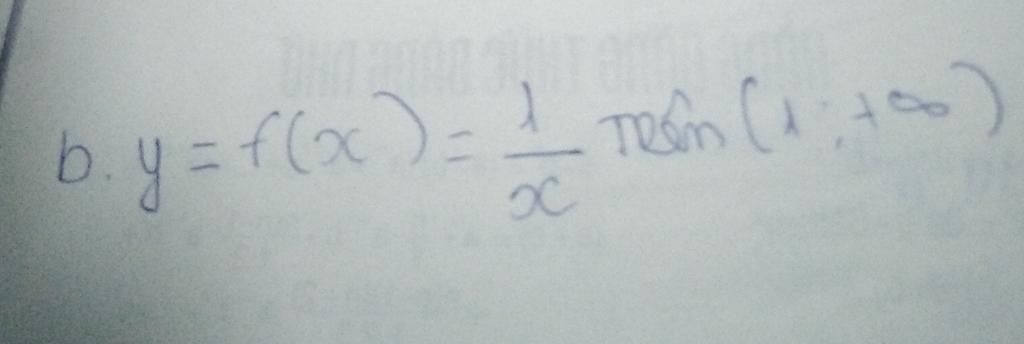 b. y = f(x) = 1/x trên (1; +∞)